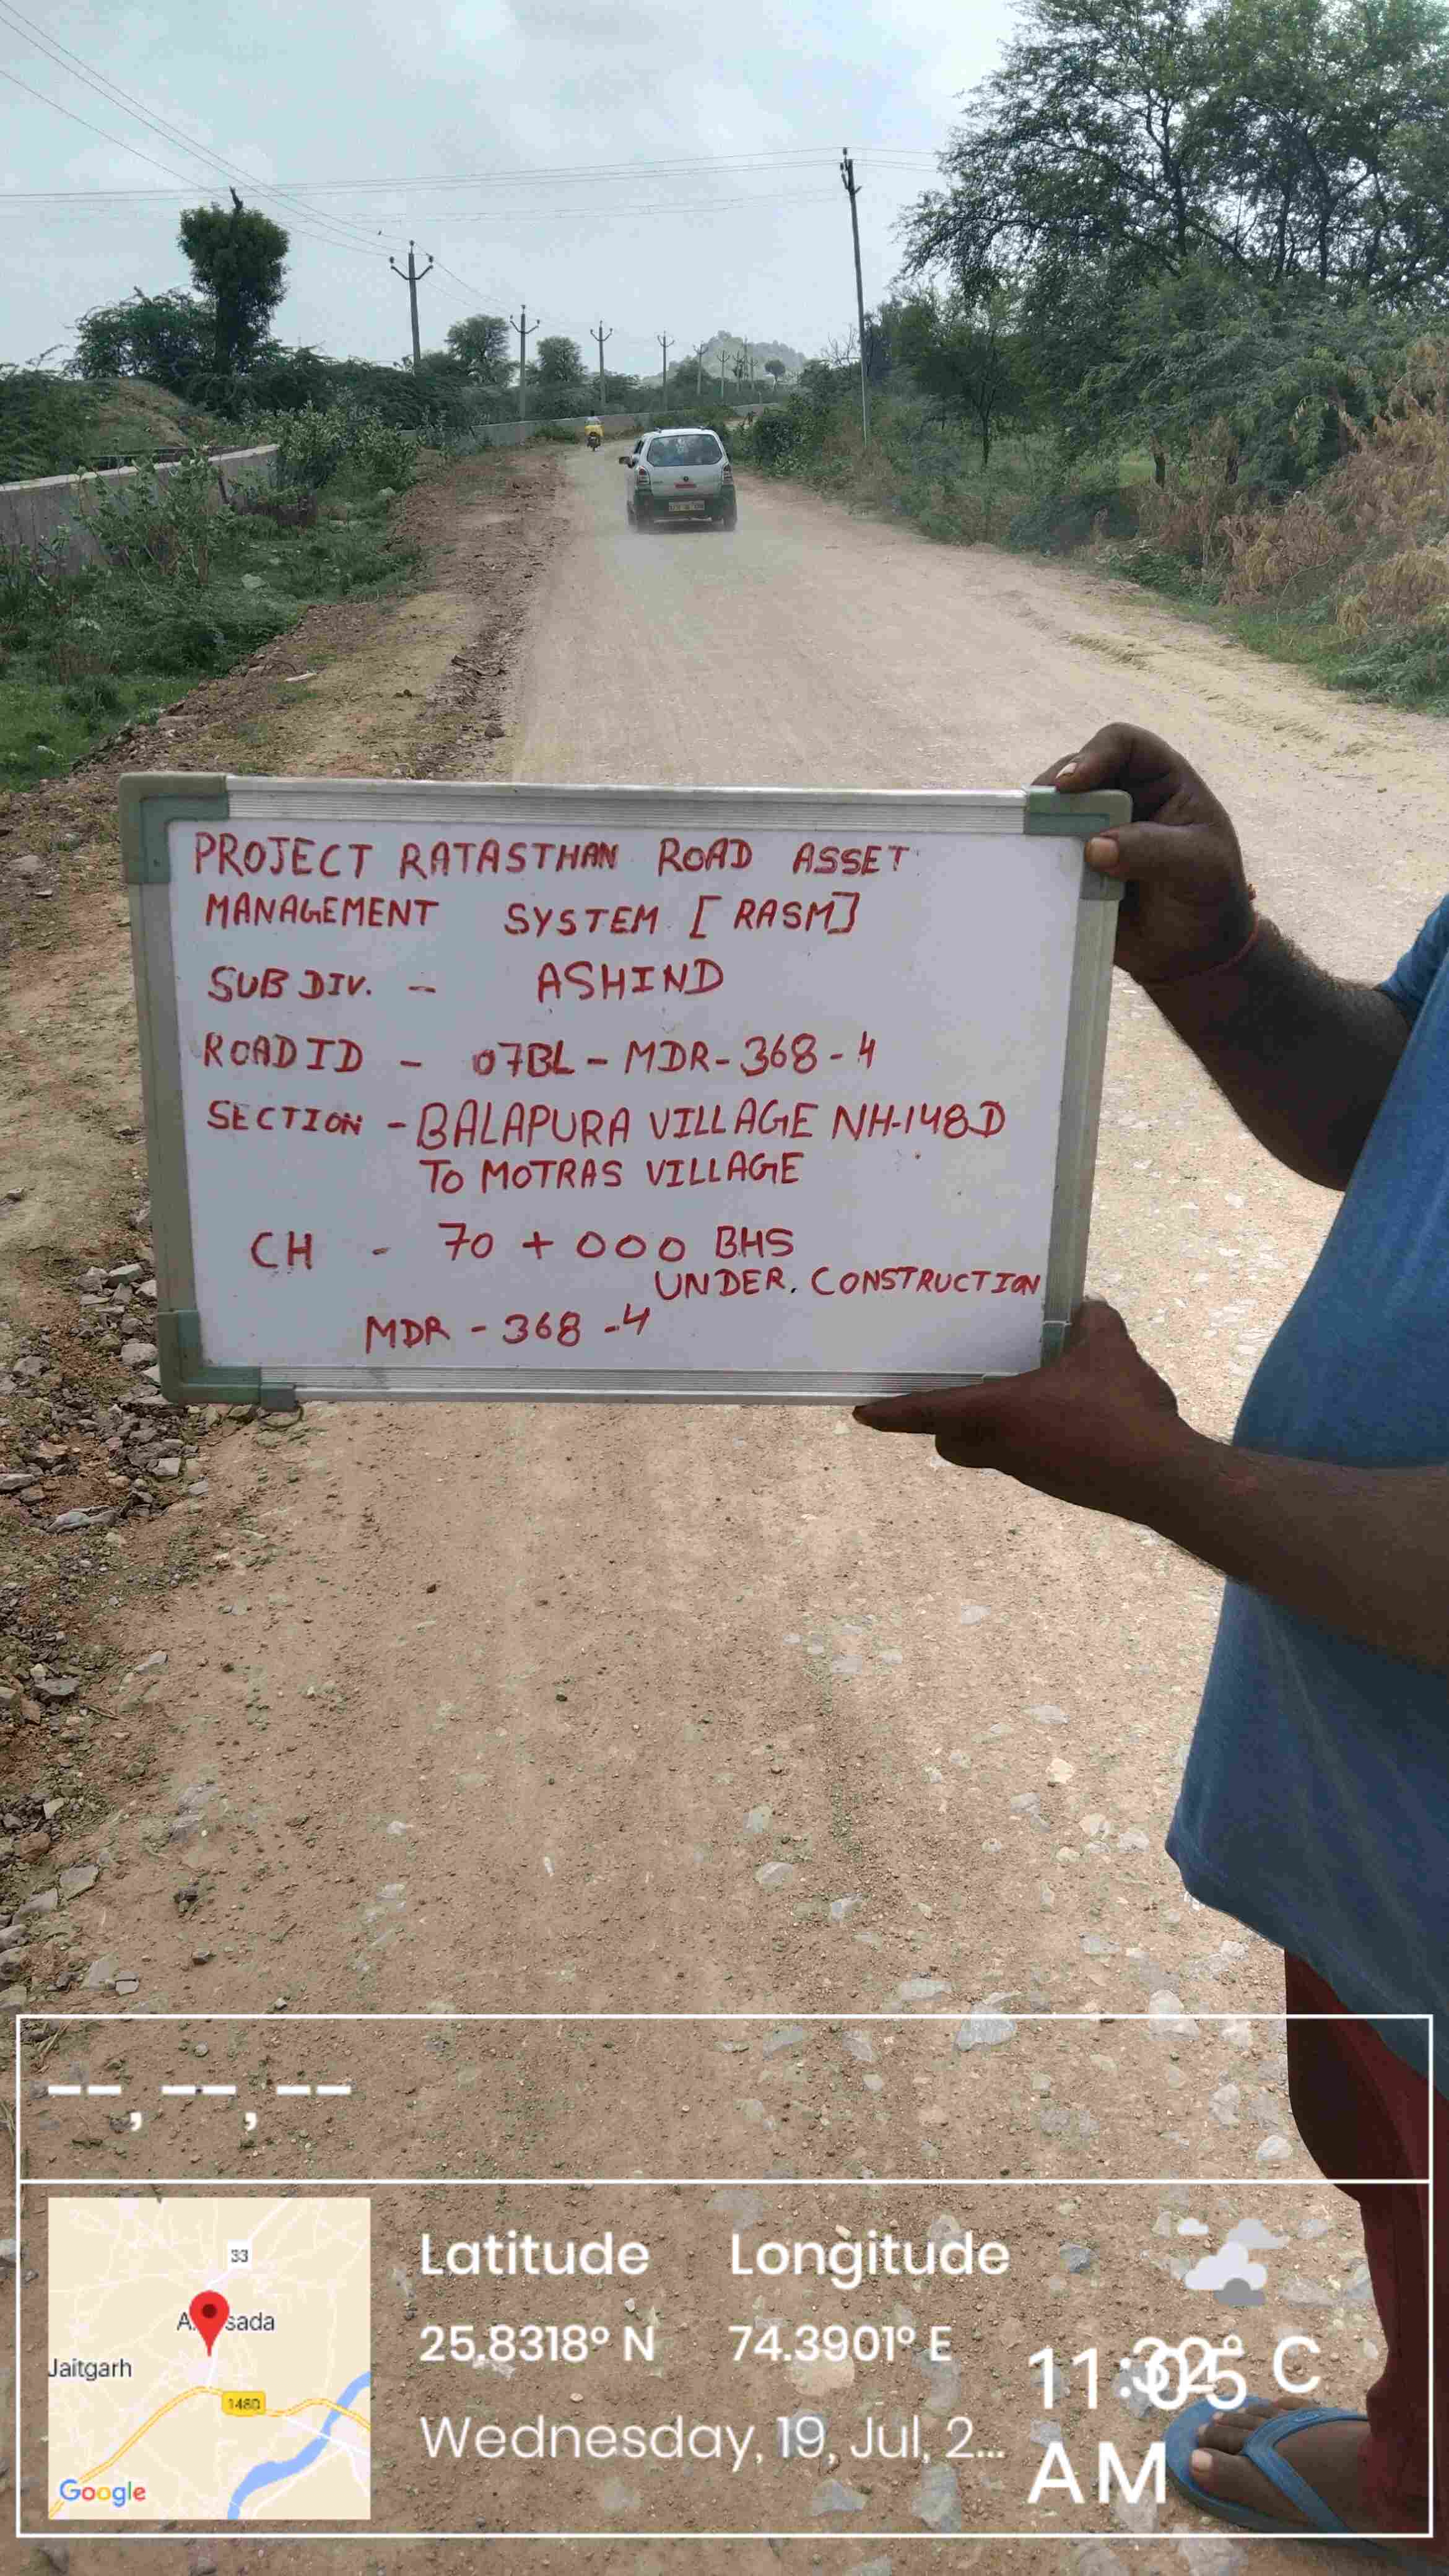 PROJECT RATASTHAN ROAD ASSET
MANAGEMENT SYSTEM [RASM]
SUB DIV. - ASHIND
ROAD ID - 07BL-MDR-368-4
SECTION - BALAPURA VILLAGE NH-148D
TO MOTRAS VILLAGE
CH - 70 + 000 BHS
UNDER. CONSTRUCTION
MDR - 368 -4
--, --, --
33
Jaitgarh
148D
Google
Latitude Longitude
25.8318° N 74.3901° E
Wednesday, 19, Jul, 2...
11:05 AM
° C